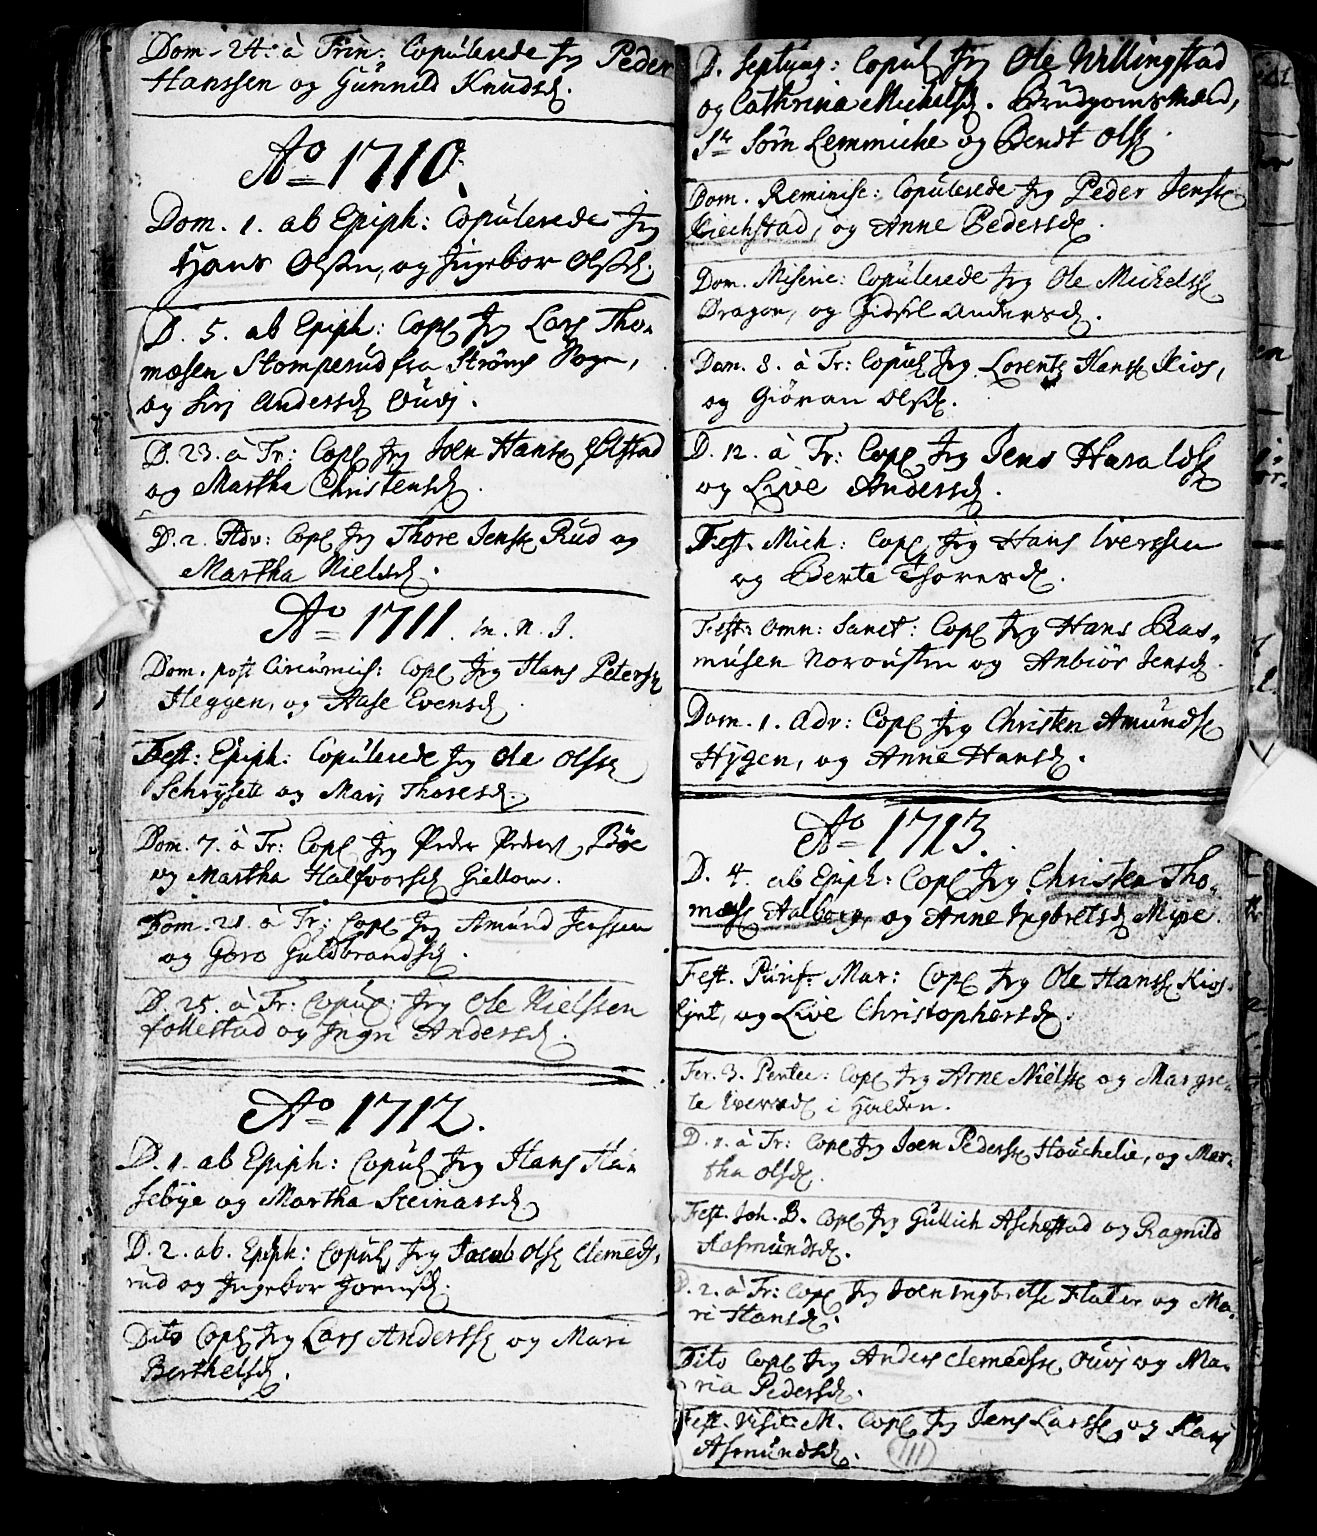 Dom. 24. à Trin: Copulerede Jeg Peder
Hanssen og Gunnild Knudsd.
Ao 1710.
Dom. 1. ab Epiph: Copulerede Jeg
Hans Olsen, og Ingebor Olsd.
D. 5. ab Epiph: Cop. Jeg Lars Tho-
mæsen Stomperud fra Ströms Sogn,
og Siri Andersd
D. 23. à Tr: Cop. Jeg Joen Hans Ølstad
og Martha Christensd.
D. 2. Adv: Cop. Jeg Thore Jens Rud og
Martha Nielsd.
Ao 1711. in. N. J.
Dom. post Circumcis: Cop. Jeg Hans Peters
Heggen, og Aase Evensd.
Fest: Epiph: Copulerede Jeg Ole Olss
og Mari Thoresd.
Dom. 7. à Tr: Cop. Jeg Peder Peders Böe
og Martha Halfvorsd Giellom.
Dom. 21. à Tr: Cop. Jeg Amund Jenssen
og Goro Guldbrandsd.
D. 25. à Tr: Copul: Jeg Ole Nielssen
follestad og Ingri Andersd.
Ao 1712.
D. 1. ab Epiph: Copul Jeg Hans Hu-
sebye og Martha Steinarsd.
D. 2. ab. Epiph: Copul Jeg Jacob Ols Clemeds-
rud og Ingebor Joensd.
Dito Cop. Jeg Lars Anderss og Mari
Berthelsd.
D. Septuag: Copul Jeg Ole Willingstad
og Cathrina Michelsd. Brudgoms Mænd,
Sr Sörn Lemmiche og Bendt Ols.
Dom. Reminisc: Copulerede Jeg Peder Jenss
Kiechstad, og Anne Pedersd.
Dom. Miseric: Copulerede Jeg Ole Michelss
Dragon, og Sidsel Andersd.
Dom. 8. à Tr: Copul Jeg Lorentz Hanss Kios,
og Giöran Olsd.
D. 12. à Tr: Cop. Jeg Jens Haralds
og Live Andersd.
Fest. Mich: Cop. Jeg Hans Iverssen
og Bente Thoresd.
Fest: Omn: Sanct: Cop. Jeg Hans Ras-
musen og Anbiör Jensd.
Dom. 1. Adv: Cop. Jeg Christen Amunds
Hygen, og Anne Hansd.
Ao 1713.
D. 4. ab Epiph: Cop. Jeg Christen Tho-
mæs Aalborg, og Anne Ingbretsd Mype.
Fest. Purif. Mar: Cop. Jeg Ole Hanss Kios-
og Live Christophersd.
Fer. 3. Pentec: Cop. Jeg Arne Nielss og Margre-
te Iversd i Halden.
D. 1. à Tr: Cop. Jeg Joen Pederss Houchelie, og Mar-
tha Olsd.
Fest. Joh. B. Cop. Jeg Gullich Aschestad og Ragnild
Aasmundsd.
D. 2. à Tr: Cop. Jeg Joen Ingbrets Flater og Ma-
ri Hansd.
Dito Cop. Jeg Anders Clemedss og Ma-
ria Pedersd.
Fest. Visit: M. Cop. Jeg Jens Larss og Kari
Asmundsd.
111